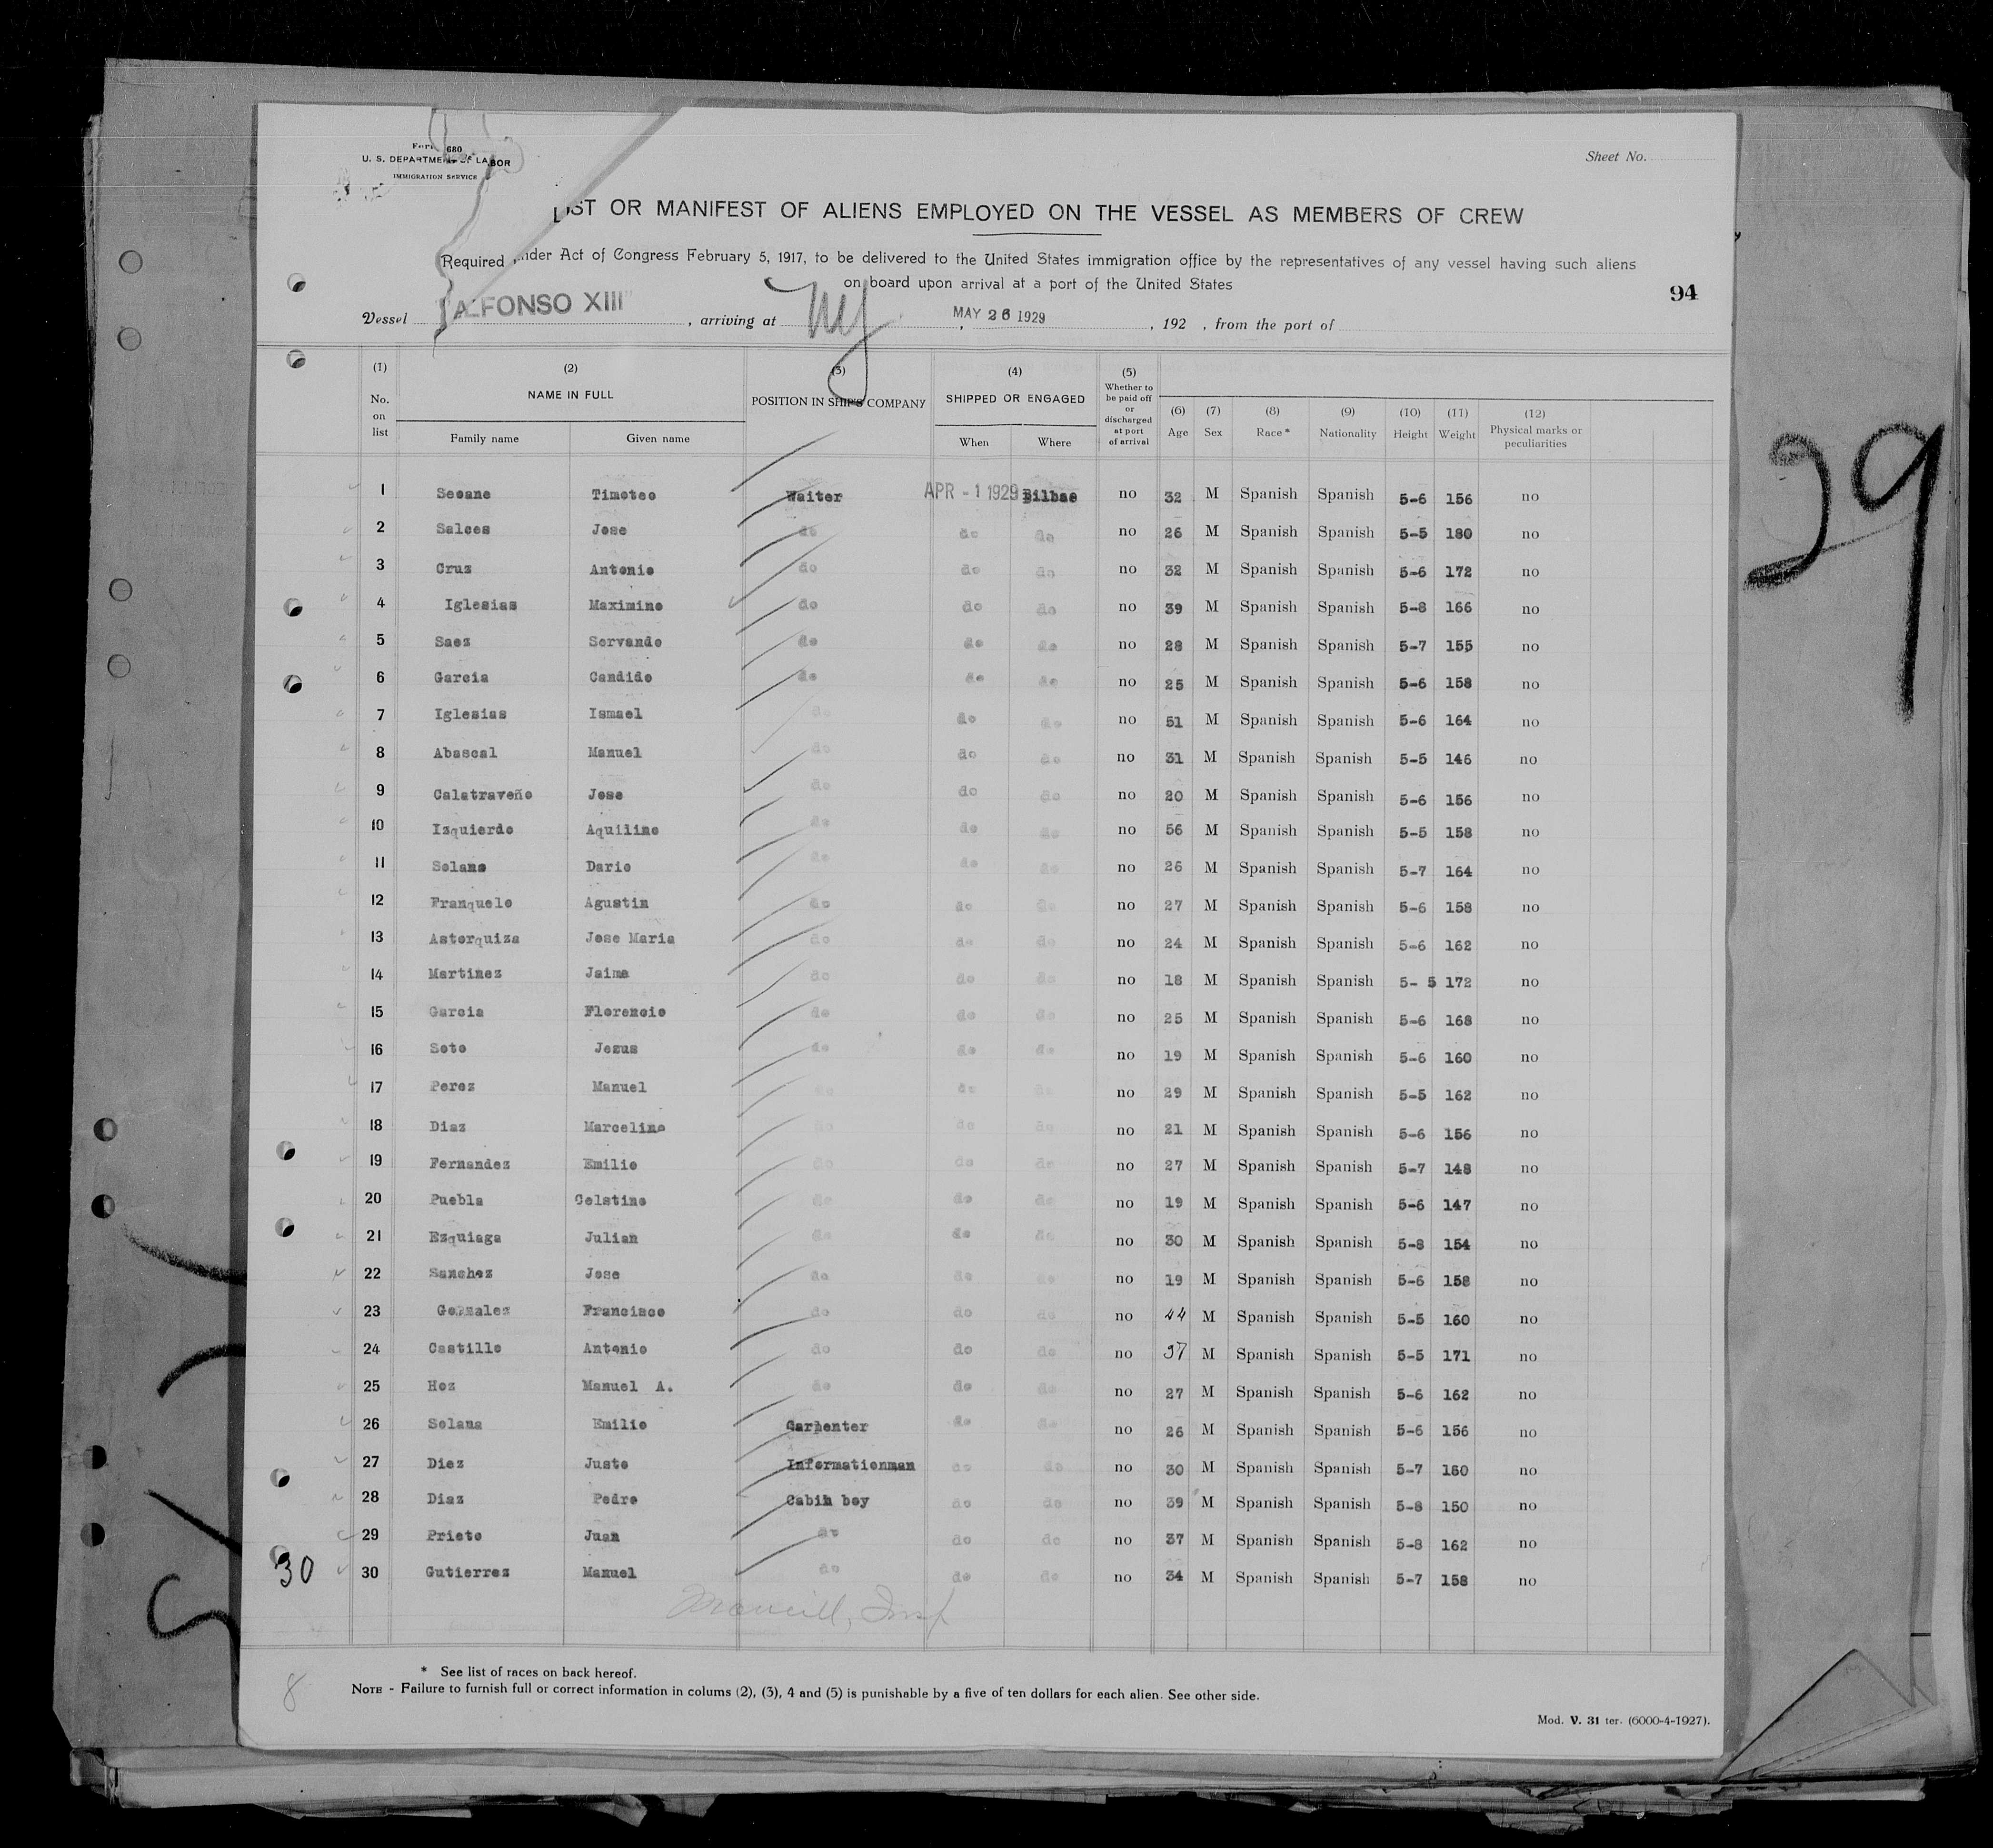 Form 680
U. S. DEPARTMENT OF LABOR
IMMIGRATION SERVICE
Sheet No.
LIST OR MANIFEST OF ALIENS EMPLOYED ON THE VESSEL AS MEMBERS OF CREW
Required under Act of Congress February 5, 1917, to be delivered to the United States immigration office by the representatives of any vessel having such aliens
on board upon arrival at a port of the United States
94
Vessel "ALFONSO XIII" , arriving at NY , MAY 26 1929 , 192 , from the port of
(1) (2) (3) (4) (5) (6) (7) (8) (9) (10) (11) (12)
No. on list NAME IN FULL Family name Given name POSITION IN SHIP'S COMPANY SHIPPED OR ENGAGED When Where Whether to be paid off or discharged at port of arrival Age Sex Race * Nationality Height Weight Physical marks or peculiarities
1 Seoane Timoteo Waiter APR - 1 1929 Bilbao no 32 M Spanish Spanish 5-6 156 no
2 Salces Jose do do do no 26 M Spanish Spanish 5-5 180 no
3 Cruz Antonio do do do no 32 M Spanish Spanish 5-6 172 no
4 Iglesias Maximino do do do no 39 M Spanish Spanish 5-8 166 no
5 Saez Servando do do do no 28 M Spanish Spanish 5-7 155 no
6 Garcia Candido do do do no 25 M Spanish Spanish 5-6 158 no
7 Iglesias Ismael do do do no 51 M Spanish Spanish 5-6 164 no
8 Abascal Manuel do do do no 31 M Spanish Spanish 5-5 146 no
9 Calatraveño Jose do do do no 20 M Spanish Spanish 5-6 156 no
10 Izquierdo Aquilino do do do no 56 M Spanish Spanish 5-5 158 no
11 Solano Dario do do do no 26 M Spanish Spanish 5-7 164 no
12 Franquelo Agustin do do do no 27 M Spanish Spanish 5-6 158 no
13 Astorquiza Jose Maria do do do no 24 M Spanish Spanish 5-6 162 no
14 Martinez Jaime do do do no 18 M Spanish Spanish 5- 5 172 no
15 Garcia Florencio do do do no 25 M Spanish Spanish 5-6 168 no
16 Soto Jesus do do do no 19 M Spanish Spanish 5-6 160 no
17 Perez Manuel do do do no 29 M Spanish Spanish 5-5 162 no
18 Diaz Marcelino do do do no 21 M Spanish Spanish 5-6 156 no
19 Fernandez Emilio do do do no 27 M Spanish Spanish 5-7 148 no
20 Puebla Celstino do do do no 19 M Spanish Spanish 5-6 147 no
21 Ezquiaga Julian do do do no 30 M Spanish Spanish 5-8 154 no
22 Sanchez Jose do do do no 19 M Spanish Spanish 5-6 158 no
23 Gonzalez Francisco do do do no 44 M Spanish Spanish 5-5 160 no
24 Castillo Antonio do do do no 37 M Spanish Spanish 5-5 171 no
25 Hoz Manuel A. do do do no 27 M Spanish Spanish 5-6 162 no
26 Solana Emilio Carpenter do do no 26 M Spanish Spanish 5-6 156 no
27 Diez Justo Informationman do do no 30 M Spanish Spanish 5-7 160 no
28 Diaz Pedro Cabin boy do do no 39 M Spanish Spanish 5-8 150 no
29 Prieto Juan do do do no 37 M Spanish Spanish 5-8 162 no
30 30 Gutierrez Manuel do do do no 34 M Spanish Spanish 5-7 158 no
* See list of races on back hereof.
8
NOTE - Failure to furnish full or correct information in colums (2), (3), 4 and (5) is punishable by a five of ten dollars for each alien. See other side.
Mod. V. 31 ter. (6000-4-1927).